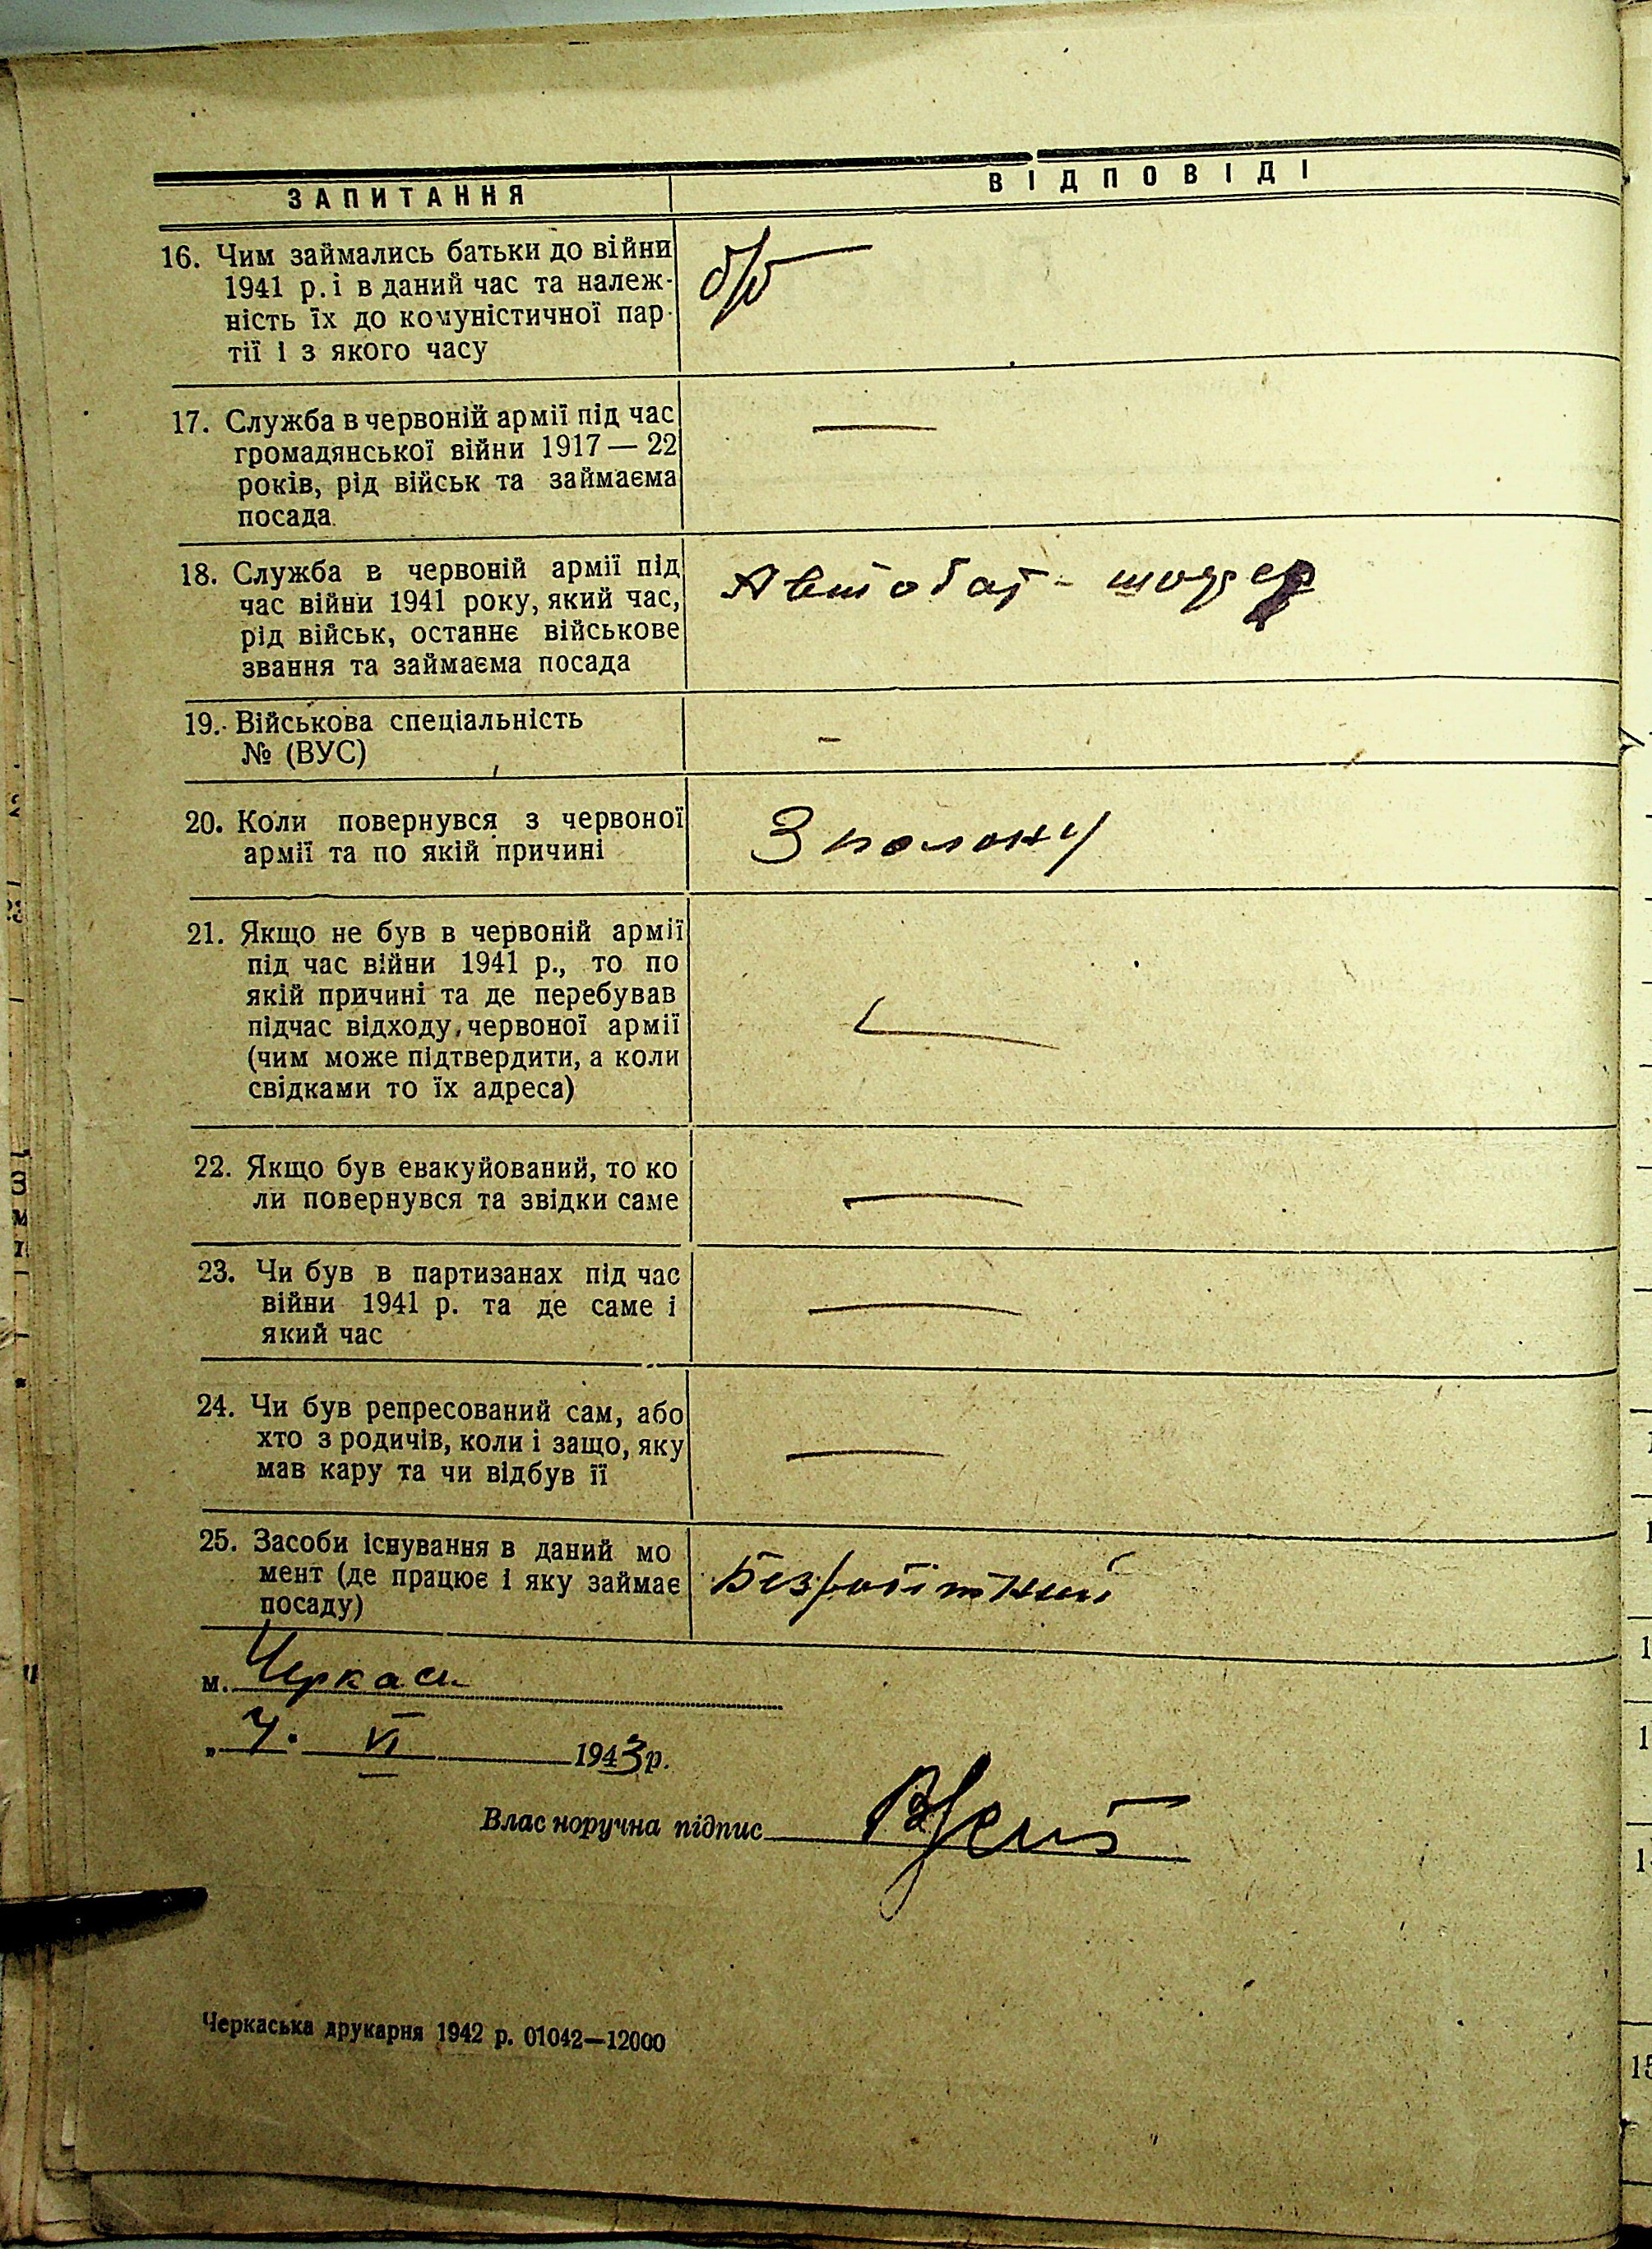 ЗАПИТАННЯ ВІДПОВІДІ
16. Чим займались батьки до війни б/п
1941 р. і в даний час та належ-
ність їх до комуністичної пар-
тії і з якого часу
17. Служба в червоній армії під час —
громадянської війни 1917 — 22
років, рід військ та займаєма
посада.
18. Служба в червоній армії під Автобат - шофер
час війни 1941 року, який час,
рід військ, останнє військове
звання та займаєма посада
19. Військова спеціальність –
№ (ВУС)
20. Коли повернувся з червоної З полону
армії та по якій причині
21. Якщо не був в червоній армії
під час війни 1941 р., то по
якій причині та де перебував
підчас відходу червоної армії —
(чим може підтвердити, а коли
свідками то їх адреса)
22. Якщо був евакуйований, то ко
ли повернувся та звідки саме —
23. Чи був в партизанах під час
війни 1941 р. та де саме і —
який час
24. Чи був репресований сам, або
хто з родичів, коли і защо, яку —
мав кару та чи відбув її
25. Засоби існування в даний мо
мент (де працює і яку займає Безробітний
посаду)
м. Черкаси
„ 7. VI 1943 р.
Власноручна підпис
Черкаська друкарня 1942 р. 01042—12000